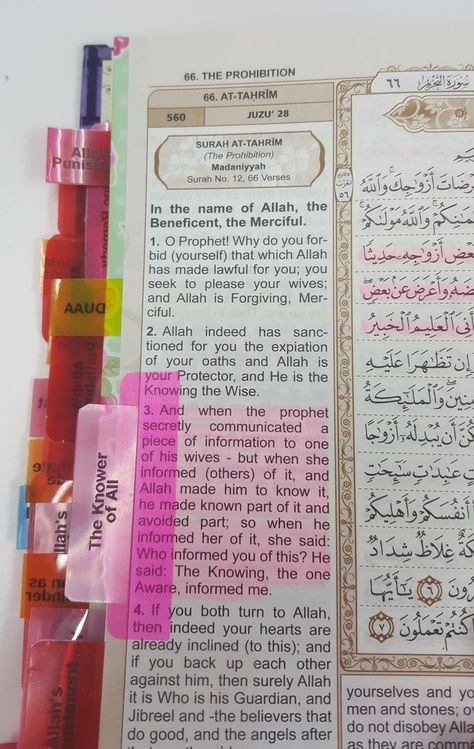 66. THE PROHIBITION
66. AT-TAḤRĪM
560
JUZU' 28
SURAH AT-TAHRĪM
(The Prohibition)
Madaniyyah
Surah No. 12, 66 Verses
In the name of Allah, the
Beneficent, the Merciful.
1. O Prophet! Why do you for-
bid (yourself) that which Allah
has made lawful for you; you
seek to please your wives;
and Allah is Forgiving, Mer-
ciful.
2. Allah indeed has sanc-
tioned for you the expiation
of your oaths and Allah is
your Protector, and He is the
Knowing the Wise.
3. And when the prophet
secretly communicated a
piece of information to one
of his wives - but when she
informed (others) of it, and
Allah made him to know it,
he made known part of it and
avoided part; so when he
informed her of it, she said:
Who informed you of this? He
said: The Knowing, the one
Aware, informed me.
4. If you both turn to Allah,
then indeed your hearts are
already inclined (to this); and
if you back up each other
against him, then surely Allah
it is Who is his Guardian, and
Jibreel and -the believers that
do good, and the angels after
yourselves and yo
men and stones; ov
do not disobey Alla
as they are comm
٦٦
سُورَةُ التَّحْرِيمِ
أَزْوَاجِكَ وَاللَّهُ
وَاللَّهُ مَوْلَىٰكُمْ
أَزْوَاجِهِ حَدِيثًا
وَأَعْرَضَ عَنْ بَعْضٍ
الْعَلِيمُ الْخَبِيرُ
تَظَاهَرَا عَلَيْهِ
وَالْمَلَٰئِكَةُ
أَن يُبْدِلَهُ أَزْوَاجًا
عَابِدَاتٍ سَائِحَاتٍ
أَنفُسَكُمْ وَأَهْلِيكُمْ
غِلَاظٌ شِدَادٌ
٦ يَا أَيُّهَا
كُنتُمْ تَعْمَلُونَ ٧
Allah's
Punish
DUAA
The Knower
of All